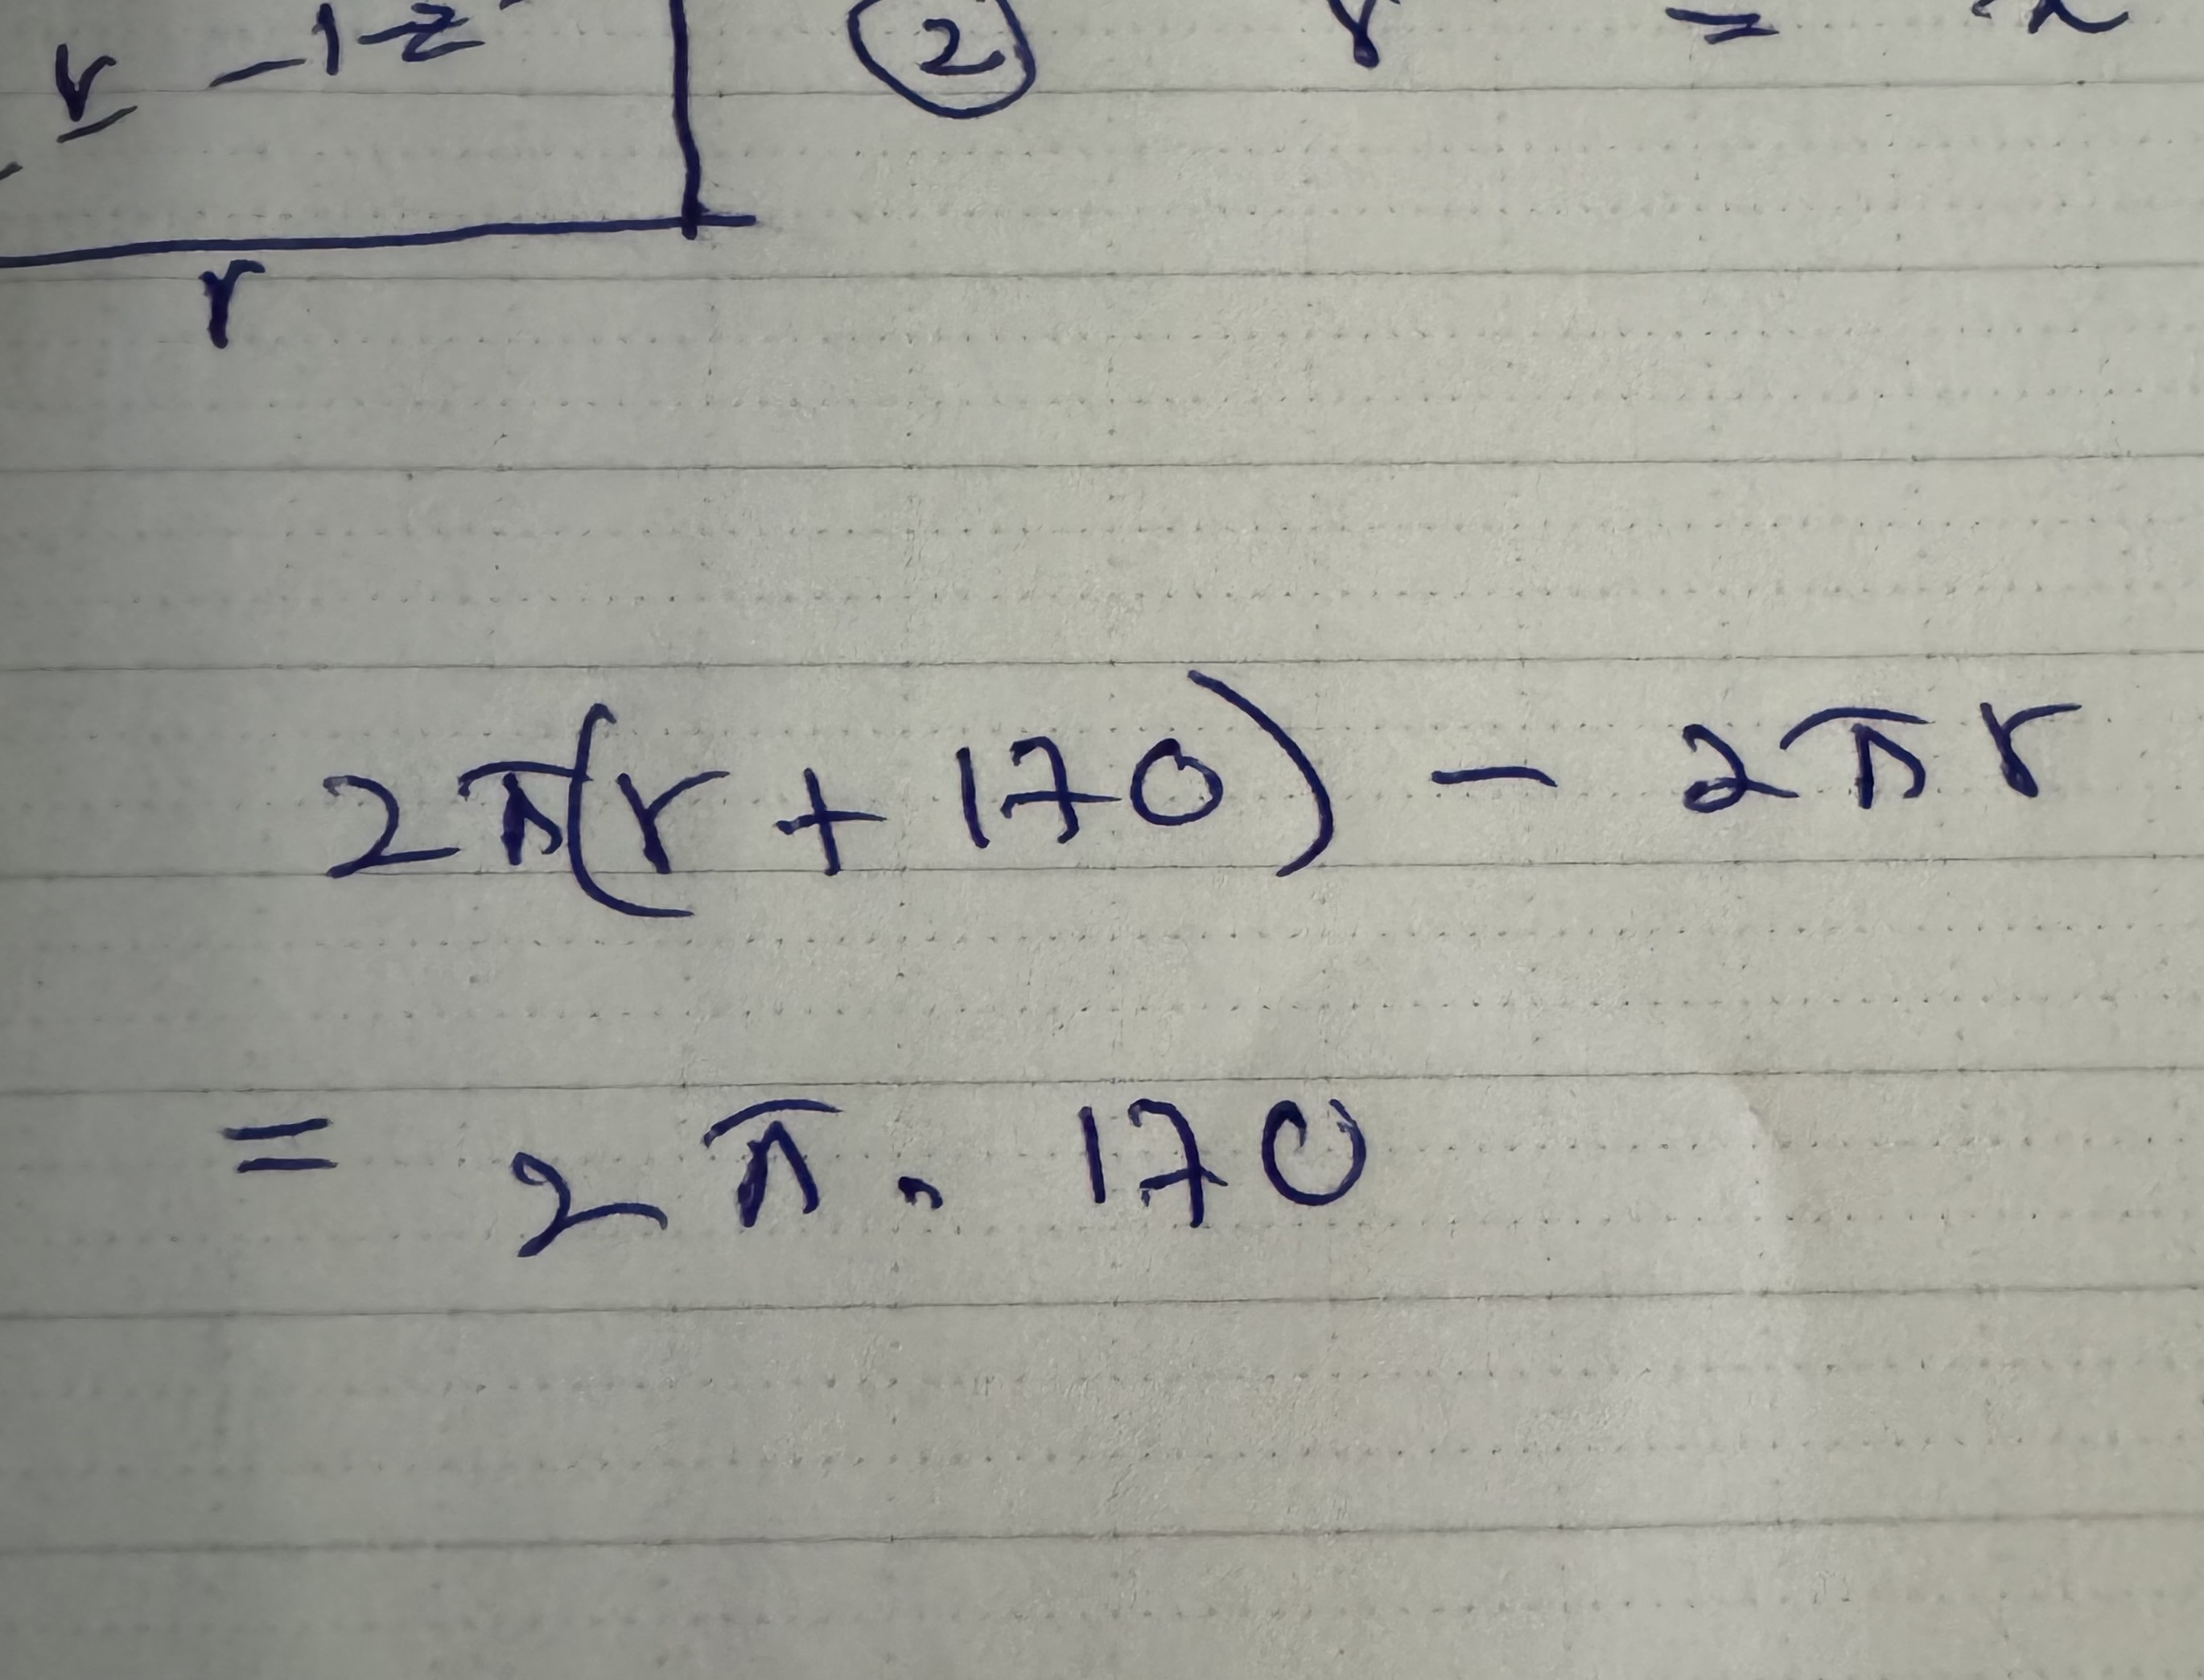 r -1-2
② r =
r
2π(r + 170) - 2πr
= 2π . 170